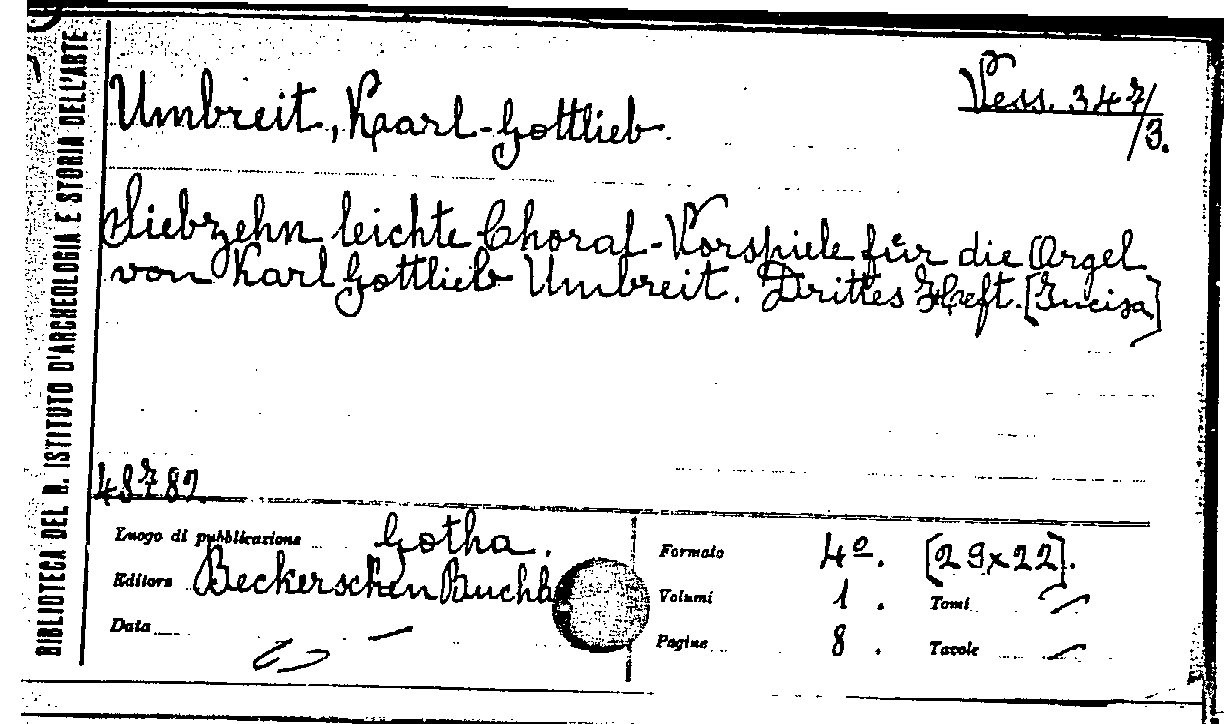 BIBLIOTECA DEL R. ISTITUTO D'ARCHEOLOGIA E STORIA DELL'ARTE
Umbreit, Karl-Gottlieb.
Vess. 347/
/3.
Siebzehn leichte Choral-Vorspiele für die Orgel
von Karl Gottlieb Umbreit. Drittes Heft. [Incisa]
48782
Luogo di pubblicazione Gotha.
Editore Beckerschen Buchh
Data —
Formato 4º. [29x22].
Volumi 1. Tomi —
Pagine 8. Tavole —